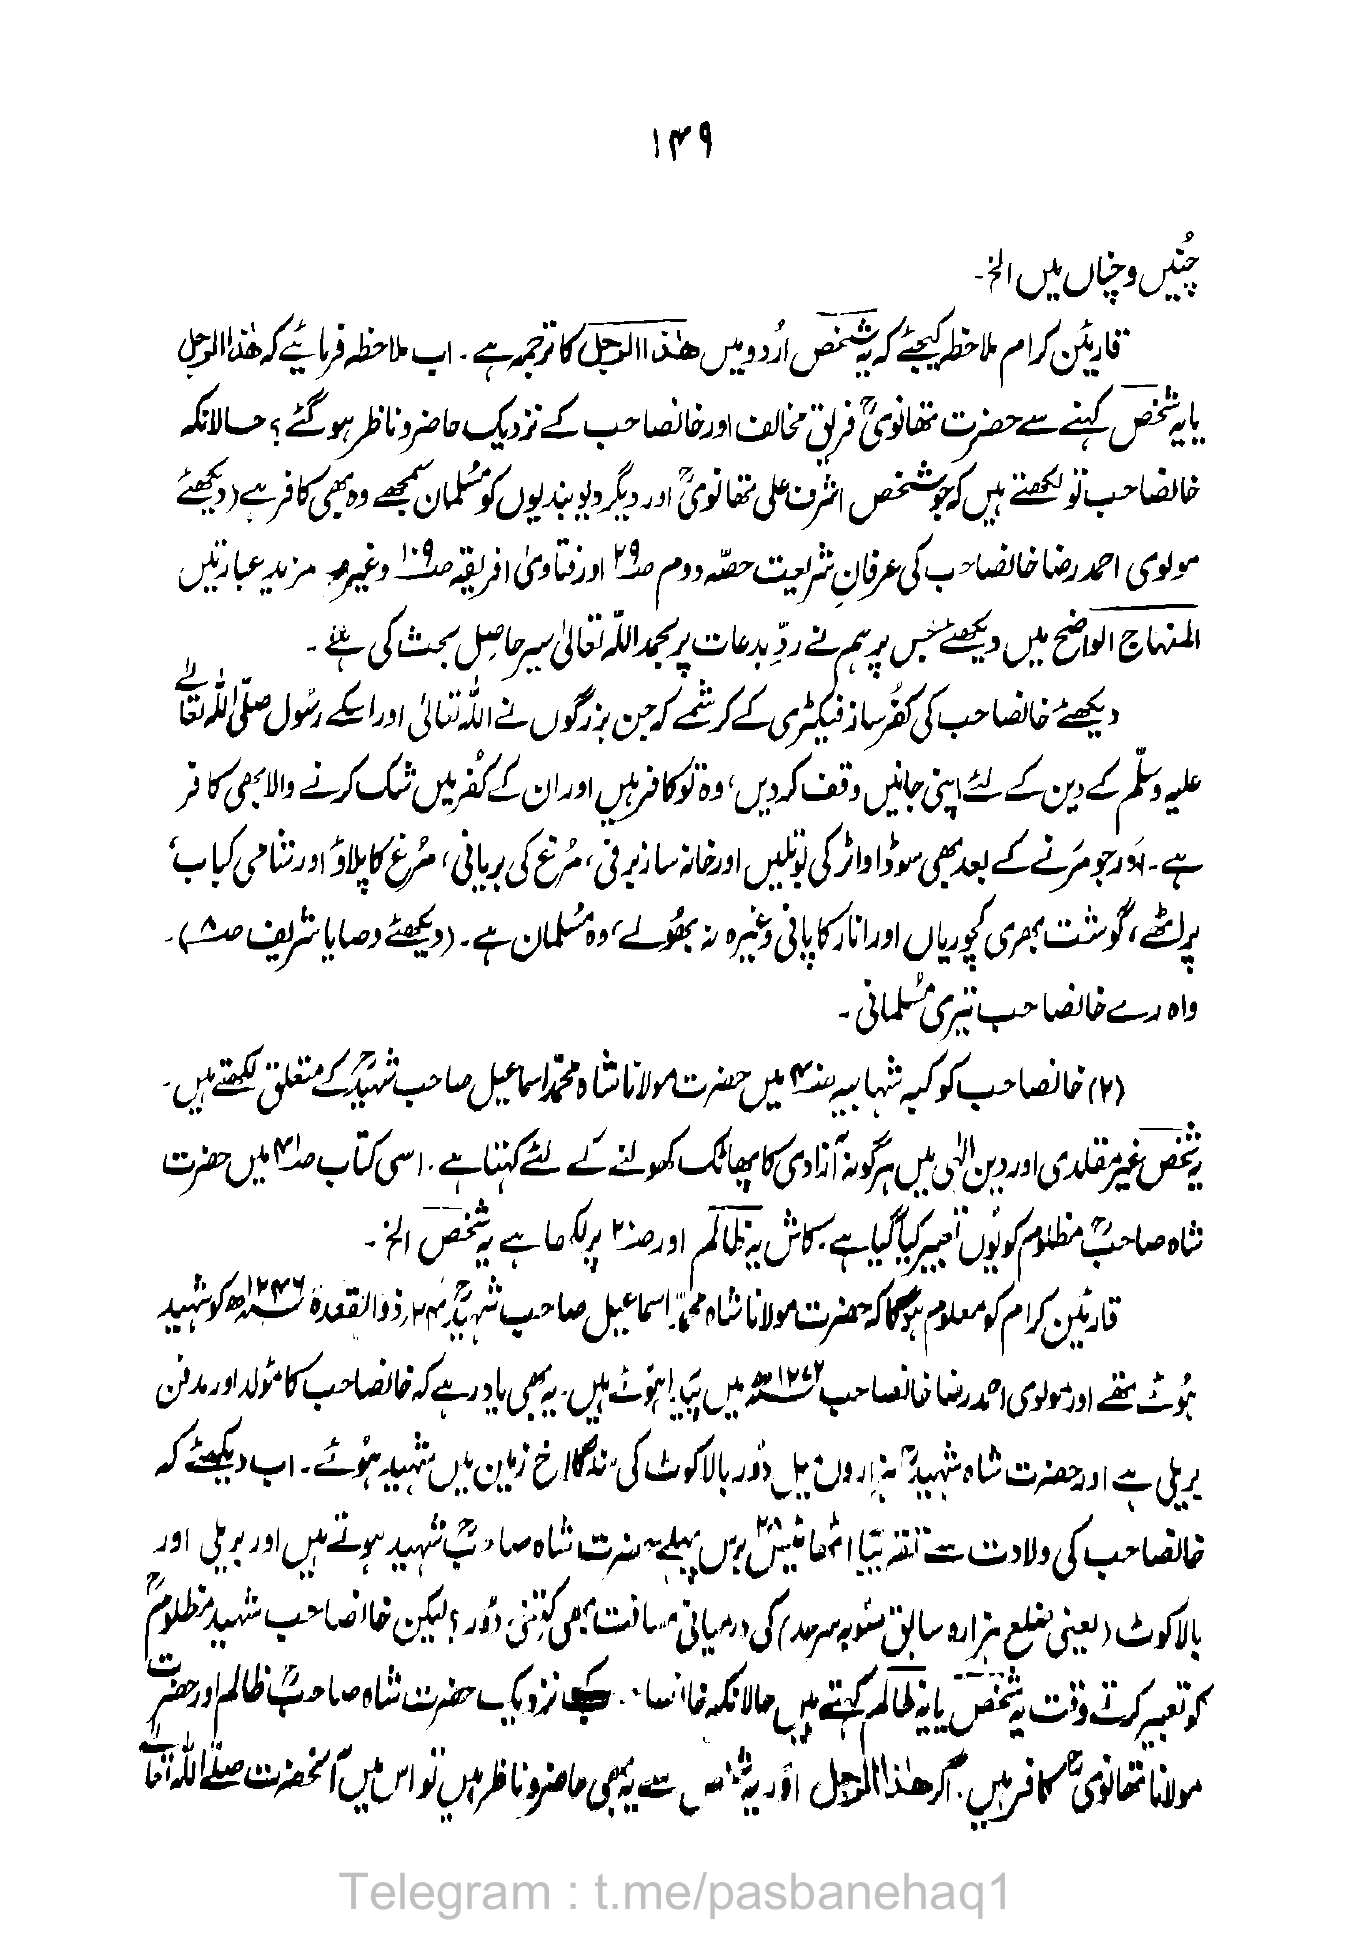 ۱۴۹
چنیں و چناں میں الخ۔
قارئین کرام ملاحظہ کیجئے کہ یہ شخص اُردو میں ھٰذا الرجل کا ترجمہ ہے۔ اب ملاحظہ فرمائیے کہ ھٰذا الرجل
یا یہ شخص کہنے سے حضرت تھانویؒ فریق مخالف اور خانصاحب کے نزدیک حاضر و ناظر ہو گئے؟ حالانکہ
خانصاحب تو لکھتے ہیں کہ جو شخص اشرف علی تھانویؒ اور دیگر دیوبندیوں کو مُسلمان سمجھے وہ بھی کافر ہے (دیکھئے
مولوی احمد رضا خانصاحب کی عرفانِ شریعت حصّہ دوم صـ۲۹ اور فتاویٰ افریقہ صـ۱۰۹ وغیرہ۔ مزید عبارتیں
المنہاج الواضح میں دیکھئے جس پر ہم نے ردِّ بدعات پر بحمد اللہ تعالیٰ سیر حاصِل بحث کی ہے۔
دیکھئے خانصاحب کی کُفر ساز فیکٹری کے کرشمے کہ جن بزرگوں نے اللہ تعالیٰ اور اسکے رسُول صلّی اللہ تعالےٰ
علیہ وسلّم کے دین کے لئے اپنی جانیں وقف کر دیں، وہ تو کافر ہیں اور ان کے کُفر میں شک کرنے والا بھی کافر
ہے۔ اور جو مَرنے کے بعد بھی سوڈا واٹر کی بوتلیں اور خانہ ساز برفی، مُرغ کی بریانی، مُرغ کا پلاؤ اور شامی کباب،
پراٹھے، گوشت بھری کچوریاں اور انار کا پانی وغیرہ نہ بھُولے، وہ مُسلمان ہے۔ (دیکھئے وصایا شریف صـ۸)۔
واہ رے خانصاحب تیری مُسلمانی۔
(۲) خانصاحب کوکبہ شہابیہ صـ۴ میں حضرت مولانا شاہ محمّد اسماعیل صاحب شہیدؒ کے متعلق لکھتے ہیں۔
یہ شخص غیر مقلدی اور دین الٰہی میں ہرگونہ آزادی کا پھاٹک کھولنے کے لئے کہتا ہے۔ اسی کتاب صـ۴ میں حضرت
شاہ صاحبؒ مظلوم کو یُوں تعبیر کیا گیا ہے۔ کاش یہ ظالم اور صـ۲۰ پر لکھا ہے یہ شخص الخ۔
قارئین کرام کو معلوم ہوگا کہ حضرت مولانا شاہ محمّد اسماعیل صاحب شہیدؒ ۲۴؍ ذوالقعدہ ۱۲۴۶ھ کو شہید
ہُوئے تھے اور مولوی احمد رضا خانصاحب ۱۲۷۲ھ میں پیدا ہوئے ہیں۔ یہ بھی یاد رہے کہ خانصاحب کا مَولد اور مدفن
بریلی ہے اور حضرت شاہ شہیدؒ ہزاروں میل دُور بالاکوٹ کی سنگلاخ زمین میں شہید ہوئے۔ اب دیکھئے کہ
خانصاحب کی ولادت سے تقریبًا اٹھائیس ۲۸ برس پہلے حضرت شاہ صاحبؒ شہید ہوتے ہیں اور بریلی اور
بالاکوٹ (یعنی ضلع ہزارہ سابق صُوبہ سرحد) کی درمیانی مسافت بھی کتنی دُور؟ لیکن خانصاحب شہید مظلومؒ
کو تعبیر کرتے وقت یہ شخص یا یہ ظالم کہتے ہیں حالانکہ خانصاحب کے نزدیک حضرت شاہ صاحبؒ ظالم اور حضرت
مولانا تھانویؒ کافر ہیں۔ اگر ھٰذا الرجل اور یہ شخص سے یہ بھی حاضر و ناظر ہیں تو اس میں آنحضرت صلّے اللہ تعالےٰ
Telegram : t.me/pasbanehaq1